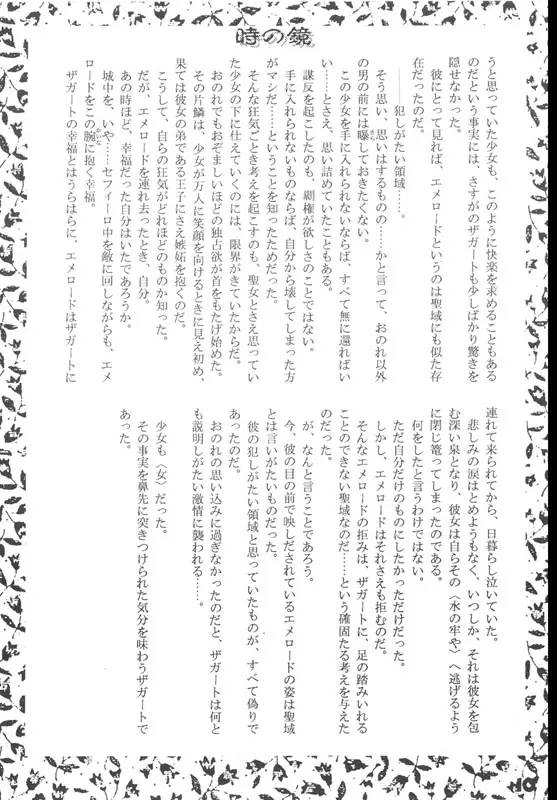 時の鏡
うと思っていた少女も、このように快楽を求めることもある
のだという事実には、さすがのザガートも少しばかり驚きを
隠せなかった。
彼にとって見れば、エメロードというのは聖域にも似た存
在だったのだ。
――犯しがたい領域……。
そう思い、思いはするものの……かと言って、おのれ以外
の男の前には曝しておきたくない。
この少女を手に入れられないならば、すべて無に還ればい
い……とさえ、思い詰めていたこともある。
謀反を起こしたのも、覇権が欲しさのことではない。
手に入れられないものならば、自分から壊してしまった方
がマシだ……ということを知ったためだった。
そんな狂気ごとき考えを起こすのも、聖女とさえ思ってい
た少女の下に仕えていくのには、限界がきていたからだ。
おのれでもおぞましいほどの独占欲が首をもたげ始めた。
その片鱗は、少女が万人に笑顔を向けるときに見え初め、
果ては彼女の弟である王子にさえ嫉妬を抱くのだ。
こうして、自らの狂気がどれほどのものか知った。
だが、エメロードを連れ去ったとき、自分。
あの時ほど、幸福だった自分はいたであろうか。
城中を、いや……セフィーロ中を敵に回しながらも、エメ
ロードをこの腕に抱く幸福。
ザガートの幸福とはうらはらに、エメロードはザガートに
連れて来られてから、日暮らし泣いていた。
悲しみの涙はとめようもなく、いつしか、それは彼女を包
む深い泉となり、彼女は自らその〈水の牢や〉へ逃げるよう
に閉じ籠ってしまったのである。
何をしたと言うわけではない。
ただ自分だけのものにしたかっただけだった。
しかし、エメロードはそれさえも拒むのだ。
そんなエメロードの拒みは、ザガートに、足の踏みいれる
ことのできない聖域なのだ……という確固たる考えを与えた
のだった。
が、なんと言うことであろう。
今、彼の目の前で映しだされているエメロードの姿は聖域
とは言いがたいものだった。
彼の犯しがたい領域と思っていたものが、すべて偽りで
あったのだ。
おのれの思い込みに過ぎなかったのだと、ザガートは何と
も説明しがたい激情に襲われる……。
少女も〈女〉だった。
その事実を鼻先に突きつけられた気分を味わうザガートで
あった。